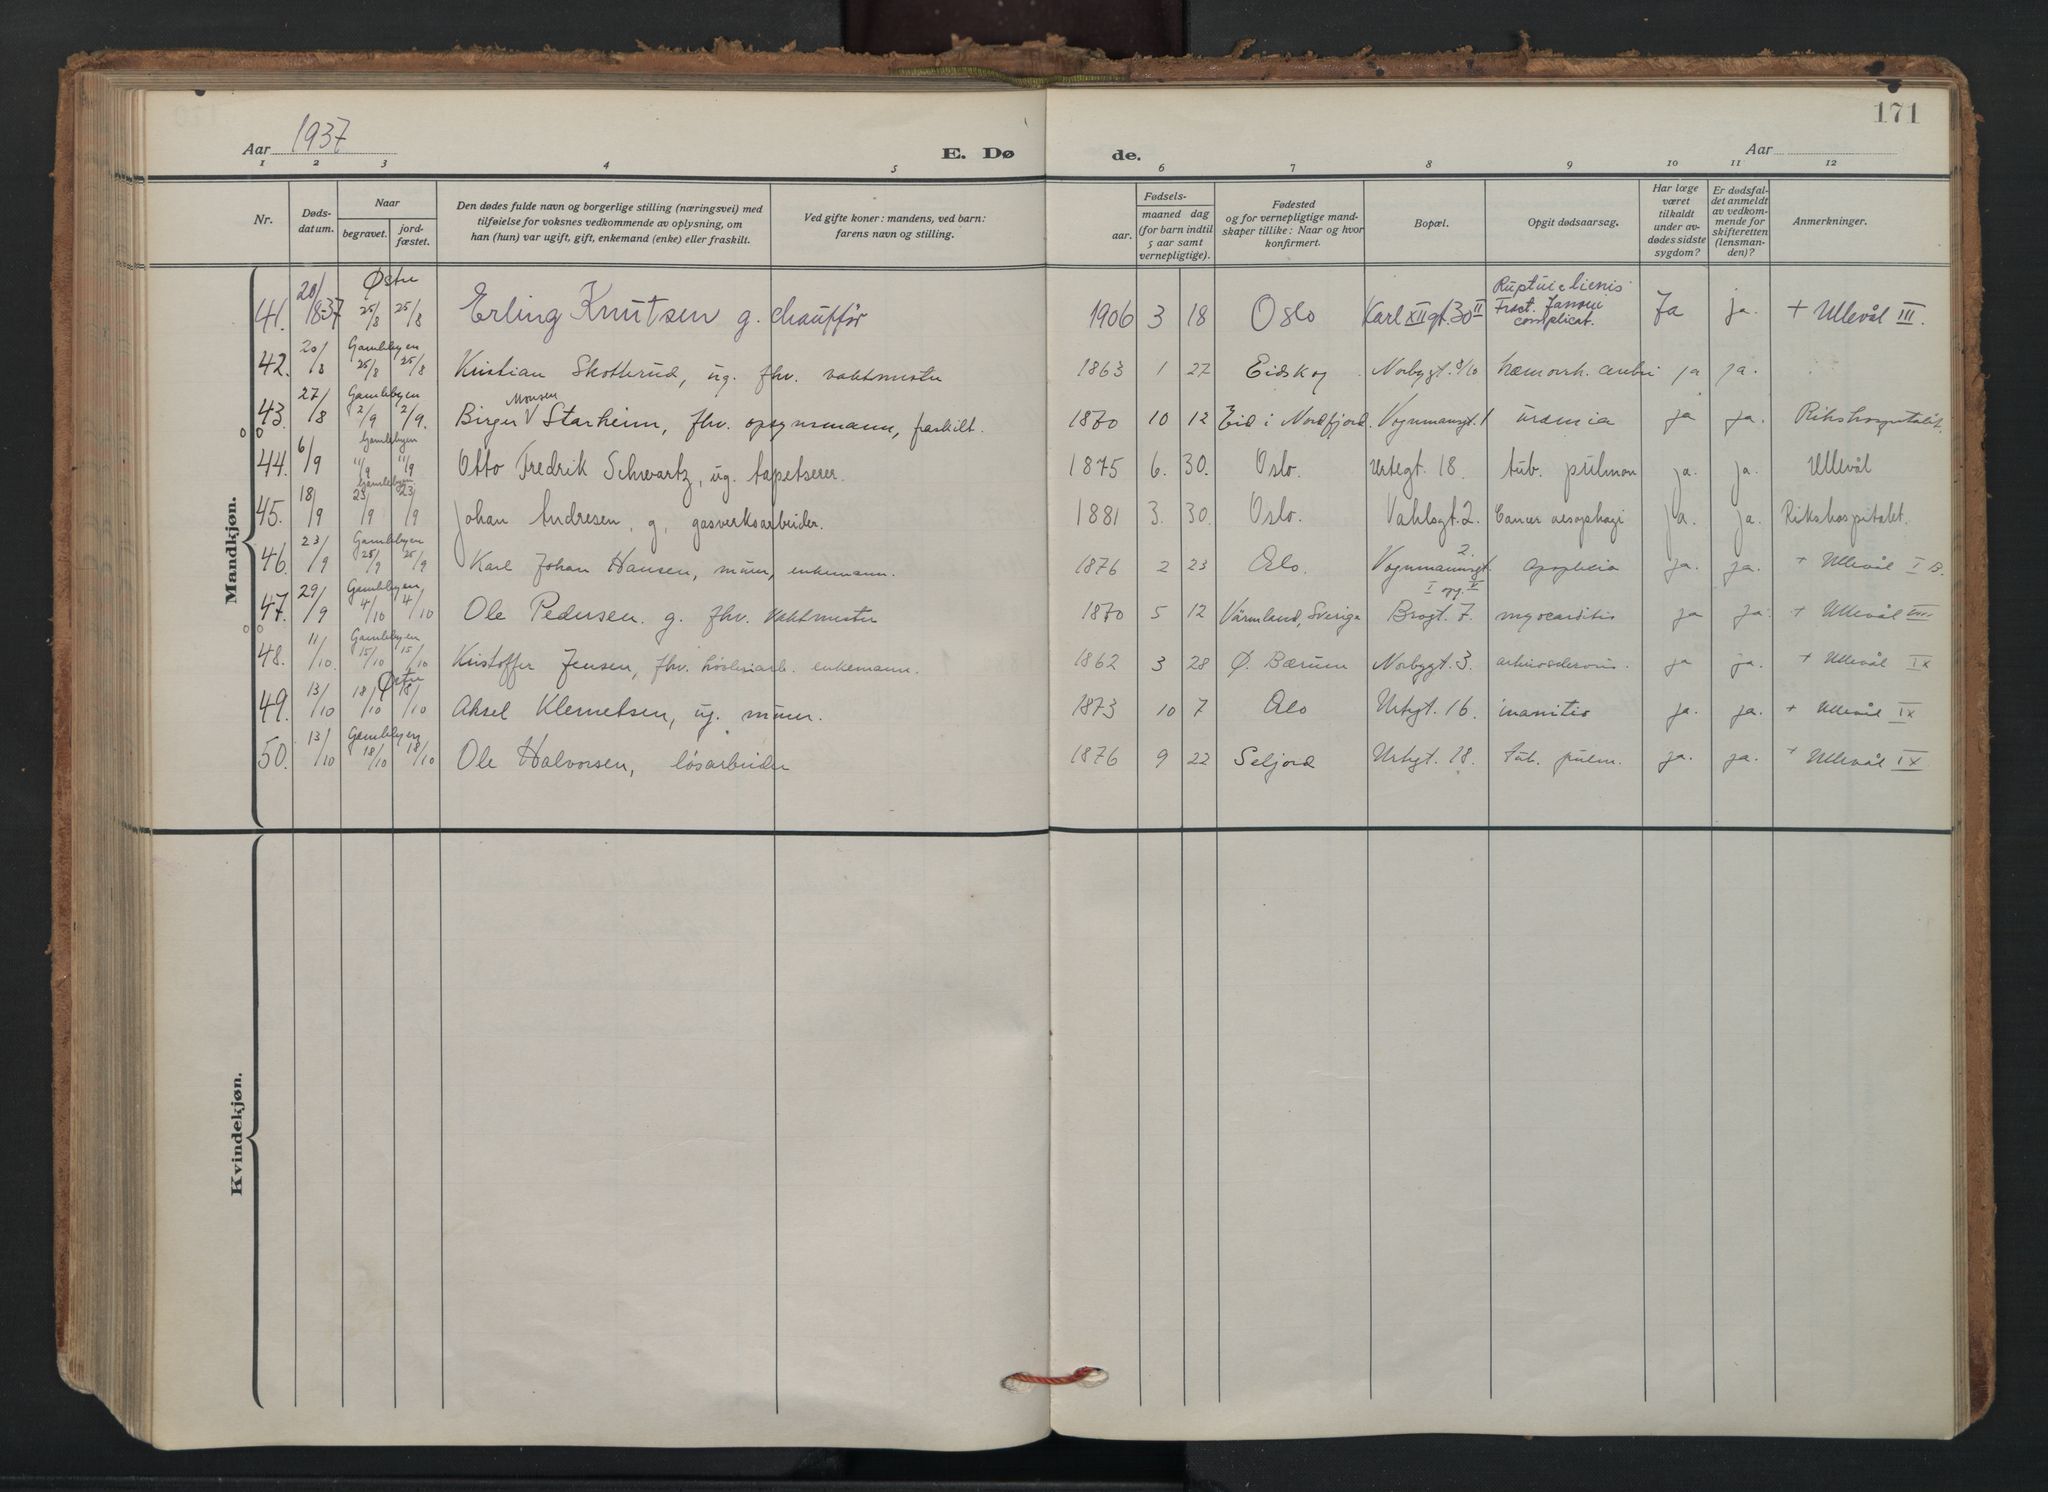 171
Aar 1937
E. Døde.
Aar
1 2 3 4 5 6 7 8 9 10 11 12
Nr.
Døds-datum.
Naar
begravet.
jord-fæstet.
Den dødes fulde navn og borgerlige stilling (næringsvei) med
tilføielse for voksnes vedkommende av oplysning, om
han (hun) var ugift, gift, enkemand (enke) eller fraskilt.
Ved gifte koner: mandens, ved barn:
farens navn og stilling.
Fødsels-
aar.
maaned dag
(for barn indtil
5 aar samt
vernepligtige).
Fødested
og for vernepligtige mand-
skaper tillike: Naar og hvor
konfirmert.
Bopæl.
Opgit dødsaarsag.
Har læge
været
tilkaldt
under av-
dødes sidste
sygdom?
Er dødsfal-
det anmeldt
av vedkom-
mende for
skifteretten
(lensman-
den)?
Anmerkninger.
Mandkjøn.
41. 20/8-37 Østre 25/8 25/8 Erling Knutsen g. chauffør 1906 3 18 Oslo Karl XII gt. 30 II Fract. complicat. Ja ja. + Ullevål III.
42. 20/8 Gamlebyen 25/8 25/8 Kristian Skotterud, ug. fhv. vaktmester 1863 1 27 Eidskog Norbygt. 8/10 hæmorrh. ja ja.
43. 27/8 Gamlebyen 2/9 2/9. Birger Monsen Starheim, fhv. opsynsmann, fraskilt. 1870 10 12 Eid i Nordfjord. Vognmannsgt. 1 uræmia ja ja. Rikshospitalet.
44. 6/9 Gamlebyen 11/9 11/9 Otto Fredrik Schwartz, ug. tapetserer. 1875 6. 30. Oslo. Urtegt. 18. tub. pulmon ja. ja. Ullevål
45. 18/9 Gamlebyen 23/9 23/9 Johan Andresen, g, gasverksarbeider. 1881 3. 30. Oslo. Vahlsgt. 2. Cancer oesophagi ja. ja. Rikshospitalet.
46. 23/9 Gamlebyen 25/9 25/9 Karl Johan Hansen, murer, enkemann. 1876 2 23 Oslo. Vognmannsgt. 2. I opg. V apoplexia ja. ja. + Ullevål I B.
47. 29/9 Gamlebyen 4/10 4/10 Ole Pedersen. g. fhv. vaktmester 1870 5 12 Värmland, Sverige Brogt. 7. myocarditis ja ja. + Ullevål VIII
48. 11/10. Gamlebyen 15/10 15/10 Kristoffer Jensen, fhv. høvleriarb. enkemann. 1862 3 28 Ø. Bærum Norbygt. 3. ja ja. + Ullevål IX
49. 13/10 Østre 18/10 18/10 Aksel Klemetsen, ug. murer. 1873 10 7 Oslo Urtegt. 16. inanitio ja. ja. + Ullevål IX
50. 13/10 Gamlebyen 18/10 18/10 Ole Halvorsen, løsarbeider 1876 9 22 Seljord Urtegt. 18. tub. pulm. ja. ja. + Ullevål IX
Kvindekjøn.